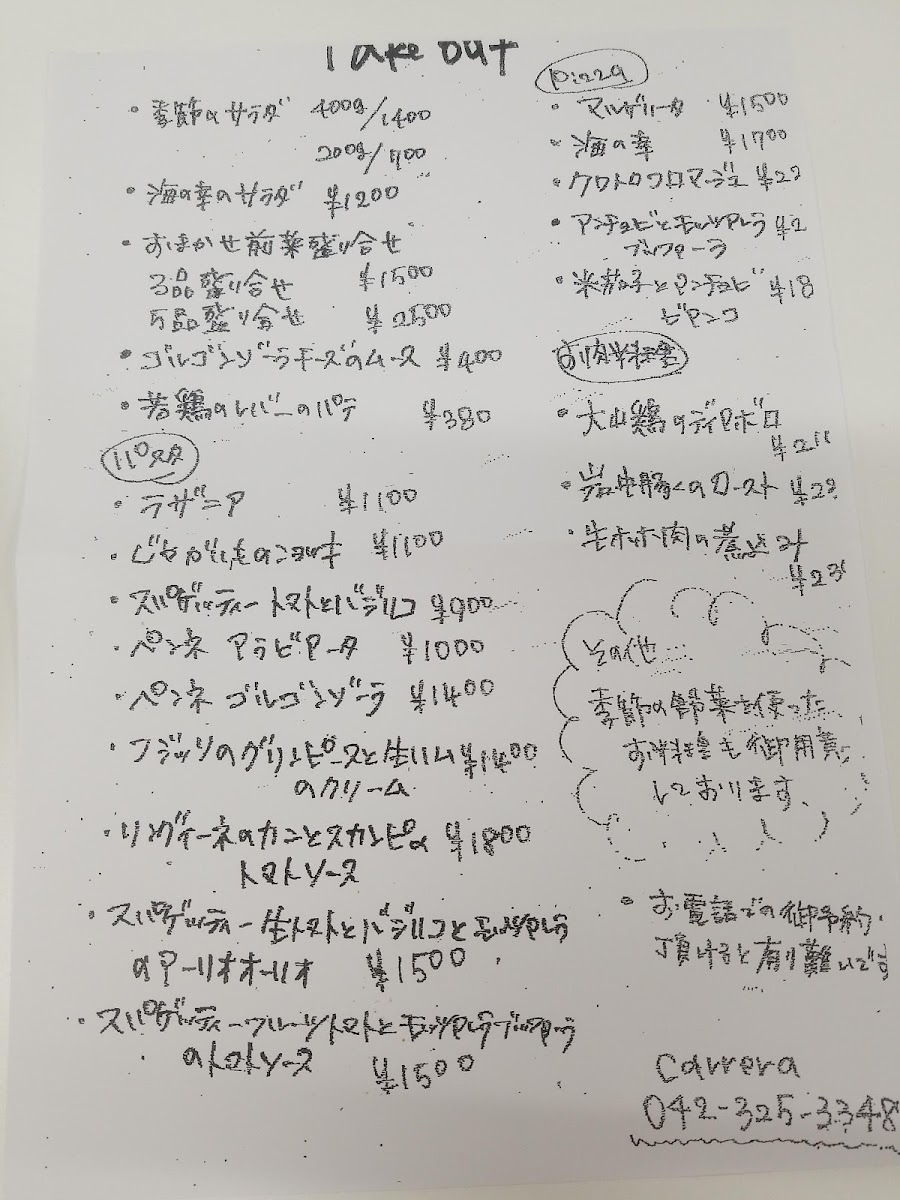 Take out
・季節のサラダ 400g/1400
200g/700
・海の幸のサラダ ¥1200
・おまかせ前菜盛り合せ
3品盛り合せ ¥1500
5品盛り合せ ¥2500
・ゴルゴンゾーラチーズのムース ¥400
・若鶏のレバーのパテ ¥380
パスタ
・ラザニア ¥1100
・じゃがいものニョッキ ¥1100
・スパゲッティートマトとバジルコ ¥900
・ペンネ アラビアータ ¥1000
・ペンネ ゴルゴンゾーラ ¥1400
・フジッリのグリンピースと生ハム ¥1400
のクリーム
・リングイーネのカニとスカンピの ¥1800
トマトソース
・スパゲッティー生トマトとバジルコとモッツアレラ
のアーリオオーリオ ¥1500
・スパゲッティーフルーツトマトとモッツアレラブッファーラ
のトマトソース ¥1500
Pizza
・マルゲリータ ¥1500
・海の幸 ¥1700
・クワトロフロマージュ ¥22
・アンチョビとモッツアレラ ¥2
ブッファーラ
・米茄子とアンチョビ ¥18
ビアンコ
お肉料理
・大山鶏のディアボロ
¥2
・岩中豚のロースト ¥22
・牛ホホ肉の煮込み
¥23
その他
季節の野菜を使った
お料理も御用意
しております、
・お電話での御予約
頂けると有り難いです
Carrera
042-325-3348